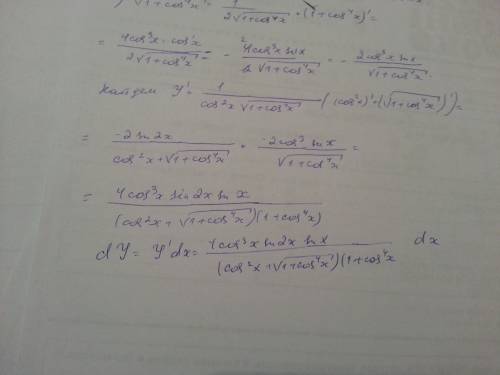 √1+cos⁴x' = 1/(2√1+cos⁴x) · (1+cos⁴x)' =
= 4cos³x · cos'x / 2√1+cos⁴x = - 4cos³x sin x / 2√1+cos⁴x = - 2cos³x sin x / √1+cos⁴x.
Найдем y' = 1/(cos²x √1+cos⁴x) ((cos²x)' + (√1+cos⁴x)') =
= -2 sin 2x / (cos²x + √1+cos⁴x) · -2cos³ sin x / √1+cos⁴x =
= 4cos³x sin2x sin x / (cos²x + √1+cos⁴x)(1+cos⁴x)
dy = y'dx = 4cos³x sin2x sin x / (cos²x + √1+cos⁴x)(1+cos⁴x dx